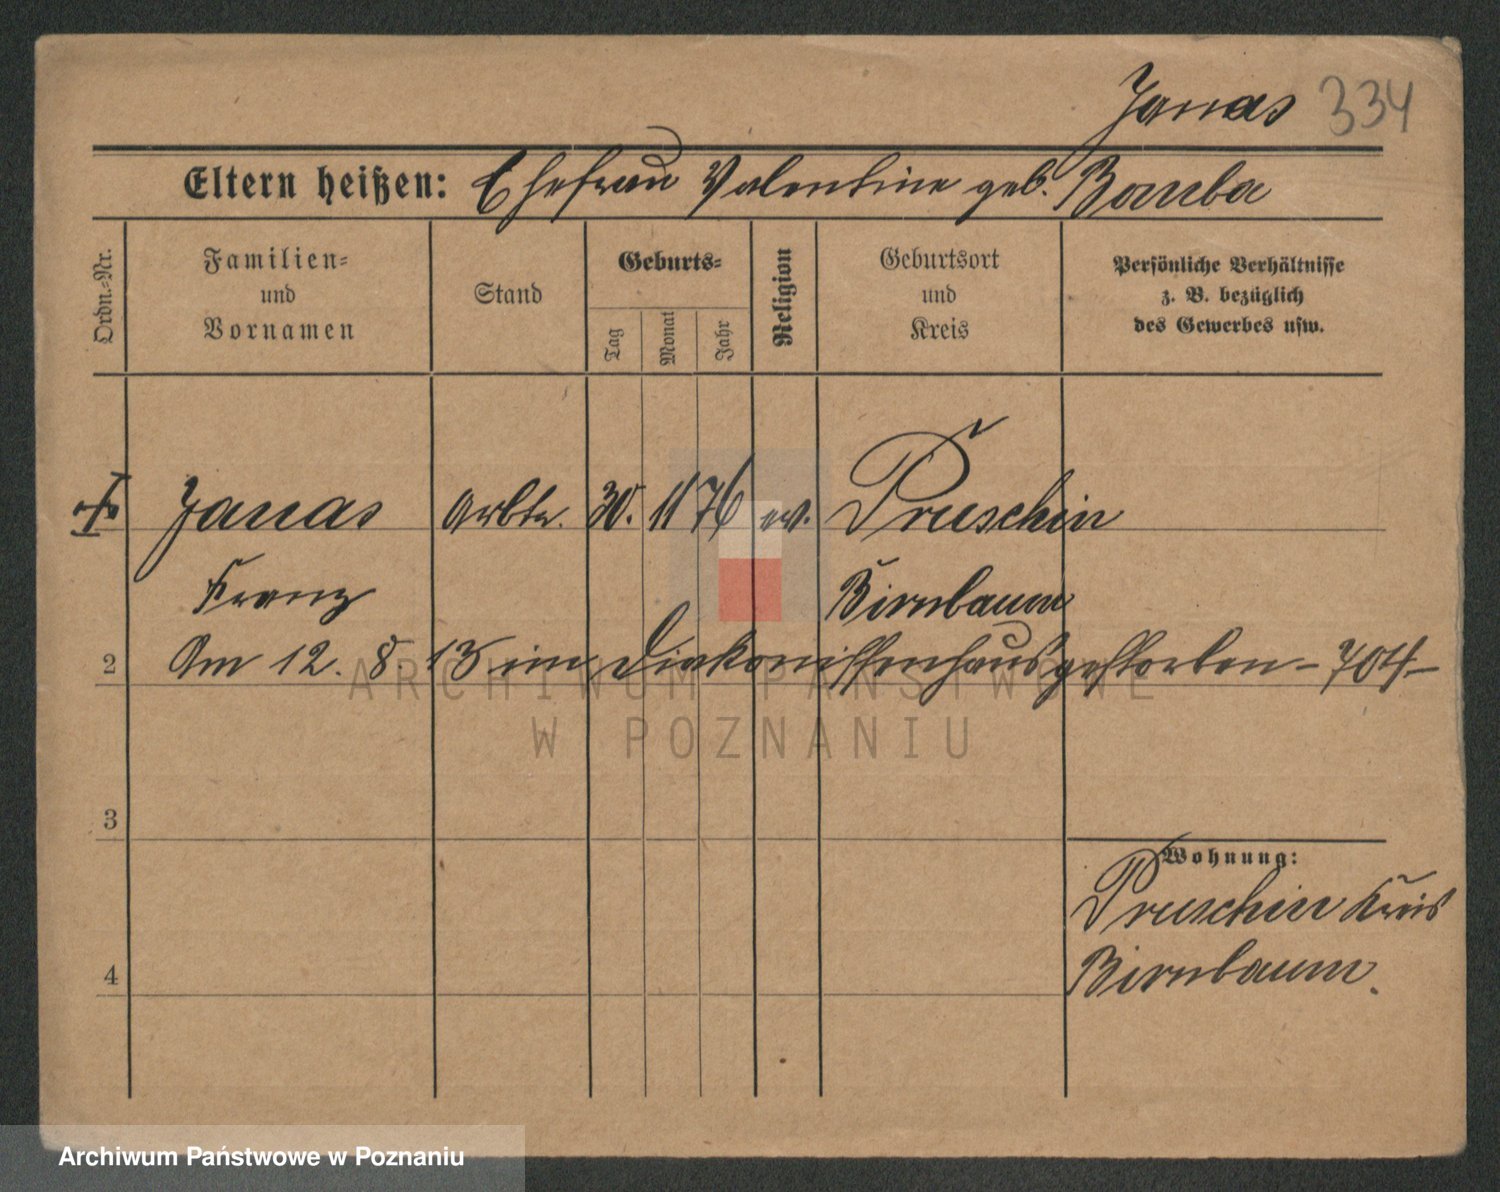 Janas 334
Eltern heißen: Ehefrau Valentine geb. Bamba
Ordn.-Nr.
Familien-
und
Vornamen
Stand
Geburts-
Tag
Monat
Jahr
Religion
Geburtsort
und
Kreis
Persönliche Verhältnisse
z. B. bezüglich
des Gewerbes usw.
Janas Arbtr. 30. 11 76 ev. Pruschin
Franz Birnbaum
2 Am 12. 8. 15 im Diakonissenhaus gestorben - 704 -
ARCHIWUM PAŃSTWOWE
W POZNANIU
3
Wohnung:
Pruschin Kreis
4 Birnbaum.
Archiwum Państwowe w Poznaniu